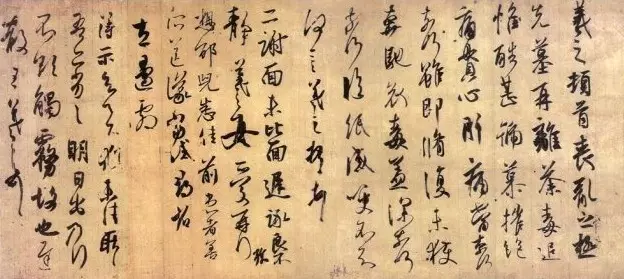 羲之頓首喪亂之極
先墓再離荼毒追
惟酷甚號慕摧絕
痛貫心肝痛當奈何
奈何雖即脩復未獲
奔馳哀毒益深奈何
奈何臨紙感哽不知
何言羲之頓首頓首
二謝面未比面遲詠良
不靜羲之女愛再拜
想邰兒悉佳前患者善
所送議當試尋省
左邊劇
得示知足下猶未佳耿耿
吾亦劣劣明日出乃行
不欲觸霧故也遲
散王羲之頓首